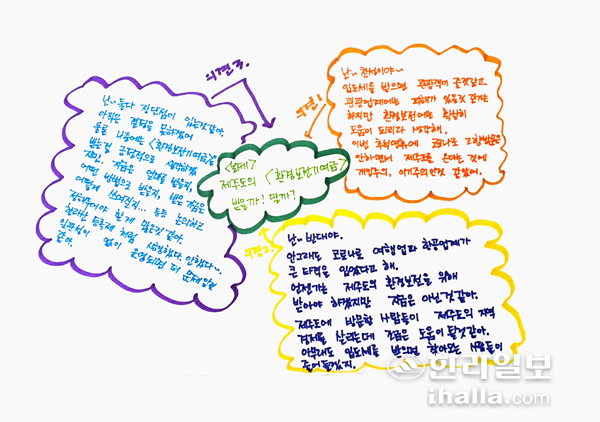 의견 3.
난~ 둘다 장단점이 있는것같아
아직은 결정을 못하겠어
물론 나중에는 <환경보전기여금>
받는걸 긍정적으로 생각하겠
지만, 지금은
어떤 방법으로 받을지, 받은 기금은
어떻게 쓰여질지... 등등 논의하고
한라산 등록제 처럼 시행한다 안한다~
없이 운영되면 더 문제일것
같아.
의견1.
난~ 찬성이야~
입도세를 받으면 관광객이 줄것같고
관광업계에는 피해가 있을것 같기는
하지만 환경보전에는 확실히
도움이 되리라 생각해.
이번 추석연휴에 코로나로 고향방문은
안하면서 제주도로 온다는 것에
개인주의, 이기주의인것 같았어.
<논제>
제주도의 <환경보전기여금>
받을까! 말까?
의견2.
난~ 반대야.
안그래도 코로나로 여행업과 항공업계가
큰 타격을 입었다고 해.
언젠가는 제주도의 환경보전을 위해
받아야 하겠지만 지금은 아닌것같아.
제주도에 방문한 사람들이 제주도의 지역
경제를 살리는데 지금은 도움이 될것같아.
아무래도 입도세를 받으면 찾아오는 사람들이
줄어 들겠지.
한라일보
ihalla.com